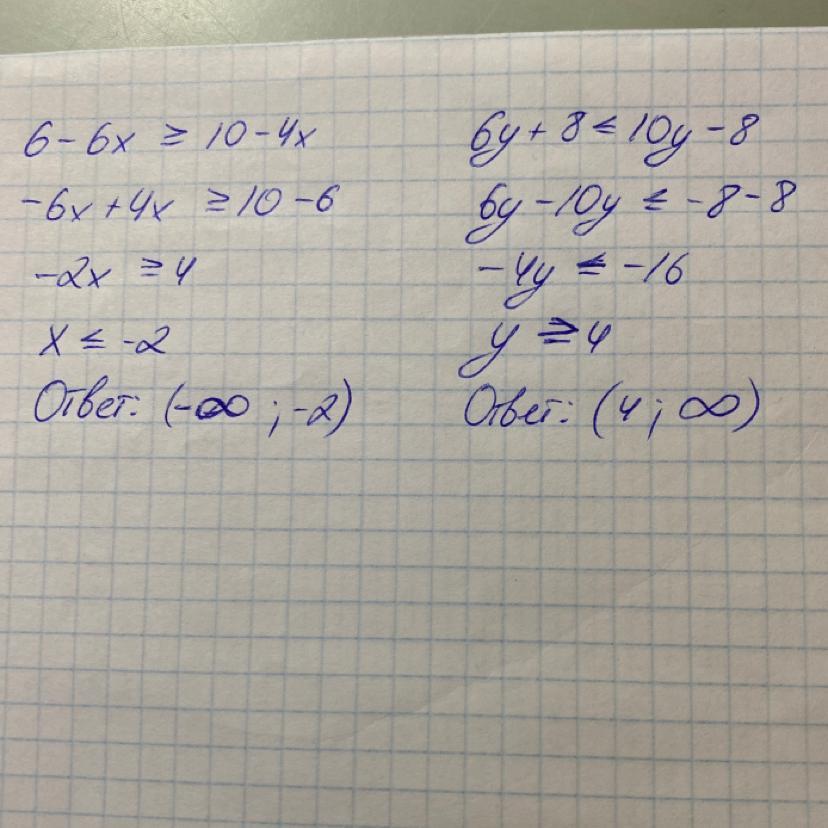 6 - 6x ≥ 10 - 4x
-6x + 4x ≥ 10 - 6
-2x ≥ 4
x ≤ -2
Ответ: (-∞ ; -2)
6y + 8 ≤ 10y - 8
6y - 10y ≤ -8 - 8
-4y ≤ -16
y ≥ 4
Ответ: (4 ; ∞)